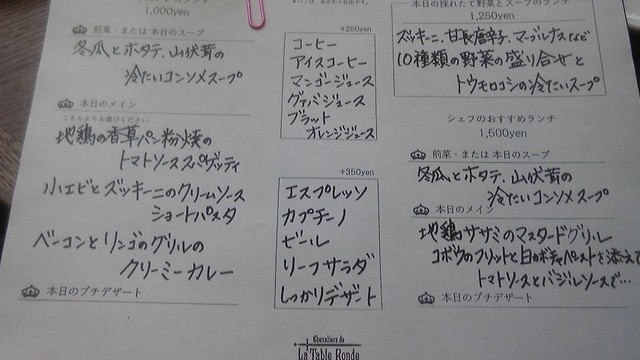 1,000yen
前菜・または 本日のスープ
冬瓜とホタテ、山伏茸の
冷たいコンソメスープ
本日のメイン
こちらよりお選びください
地鶏の香草パン粉焼の
トマトソーススパゲッティ
小エビとズッキーニのクリームソース
ショートパスタ
ベーコンとリンゴのグリルの
クリーミーカレー
本日のプチデザート
+250yen
コーヒー
アイスコーヒー
マンゴージュース
グァバジュース
ブラット
オレンジジュース
+350yen
エスプレッソ
カプチーノ
ビール
リーフサラダ
しっかりデザート
Chevaliers de
La Table Ronde
本日の採れたて野菜とスープのランチ
1,250yen
ズッキーニ、甘長唐辛子、マーブルナスなど
10種類の野菜の盛り合せと
トウモロコシの冷たいスープ
シェフのおすすめランチ
1,500yen
前菜・または 本日のスープ
冬瓜とホタテ、山伏茸の
冷たいコンソメスープ
本日のメイン
地鶏ササミのマスタードグリル
ゴボウのフリットと白いポテトペーストを添えて
トマトソースとバジルソースで…
本日のプチデザート